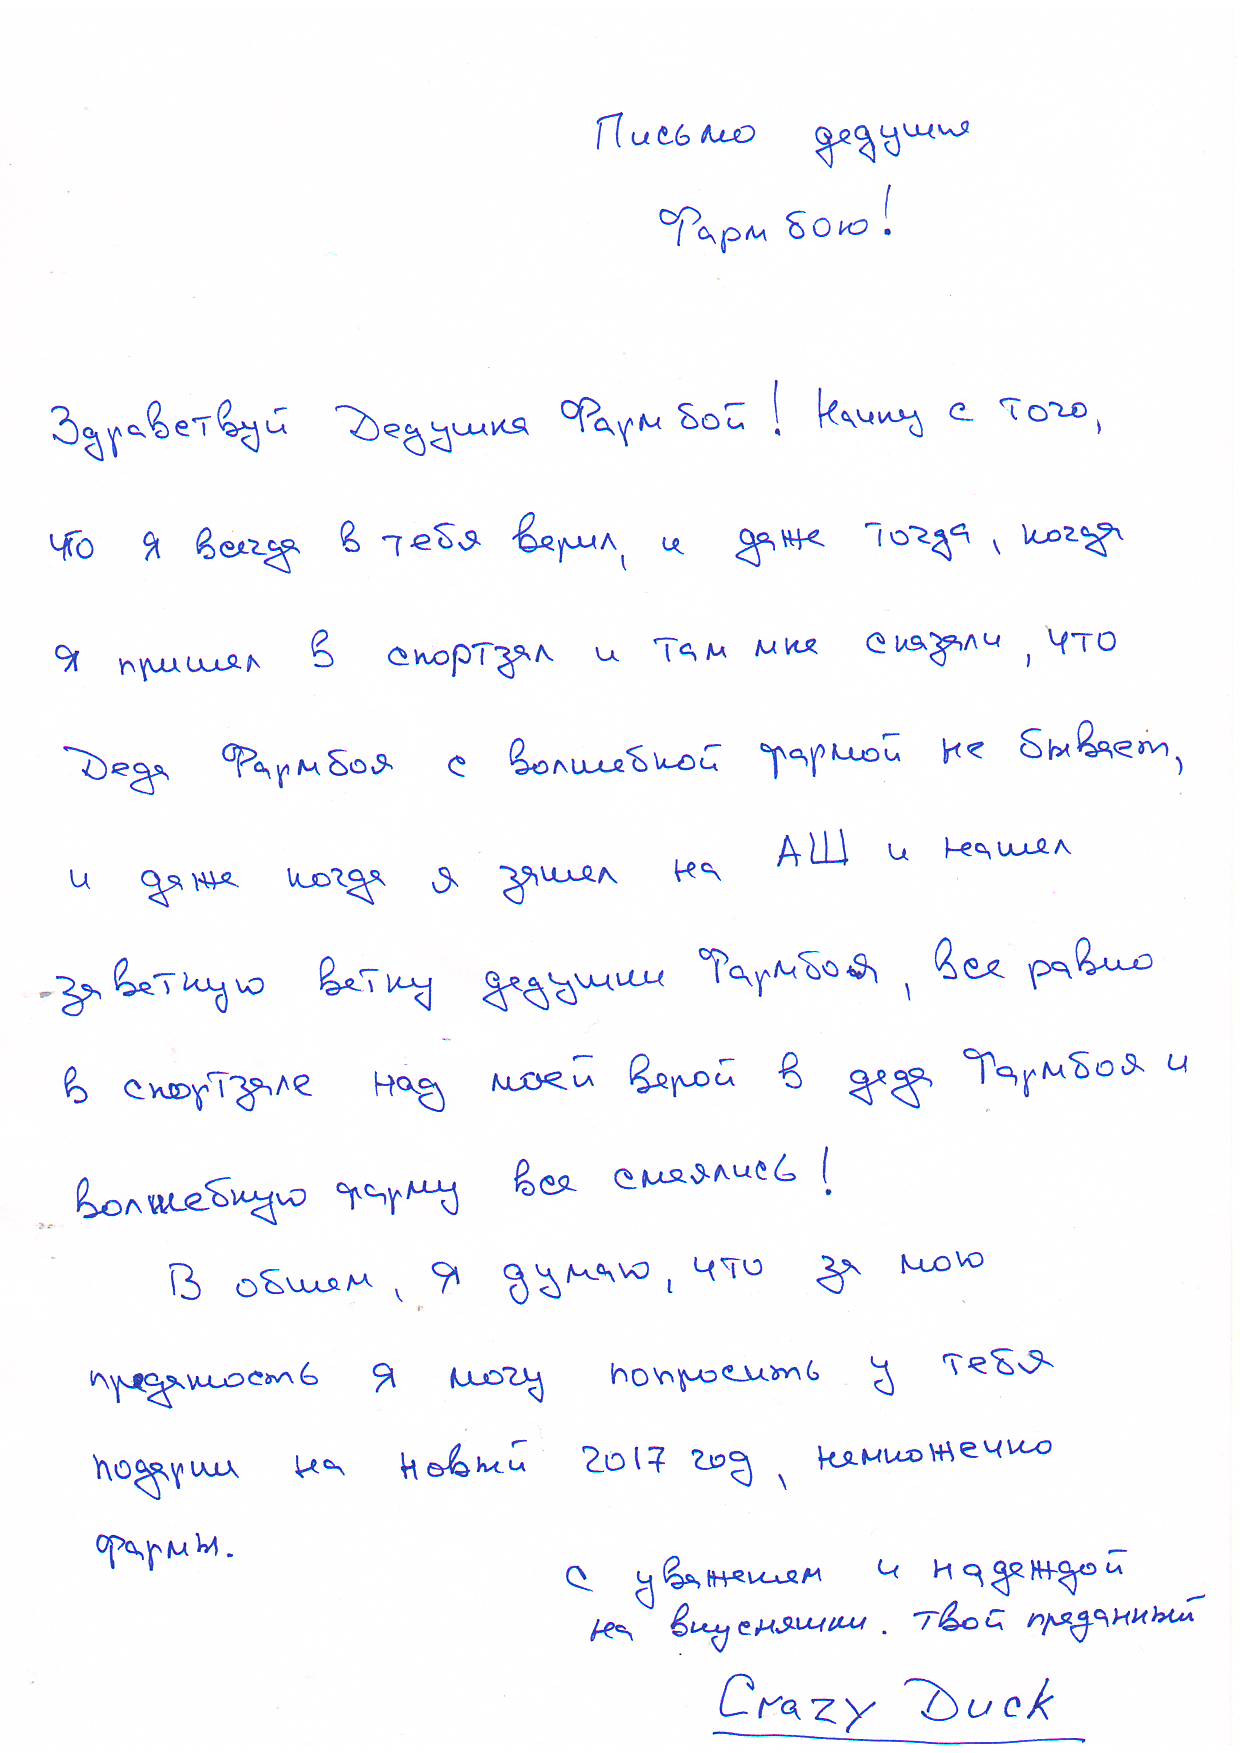 Письмо дедушке
Фармбою!
Здраветвуй Дедушка Фармбой! Начну с того,
что я всегда в тебя верил, и даже тогда, когда
я пришел в спортзал и там мне сказали, что
Деда Фармбоя с волшебной фармой не бывает,
и даже когда я зашел на АШ и нашел
заветную ветку дедушки Фармбоя, все равно
в спортзале над моей верой в деда Фармбоя и
волшебную фарму все смеялись!
В общем, я думаю, что за мою
преданость я могу попросить у тебя
подарки на новый 2017 год, немножечко
фармы.
С уважением и надеждой
на вкусняшки. Твой преданный
Crazy Duck